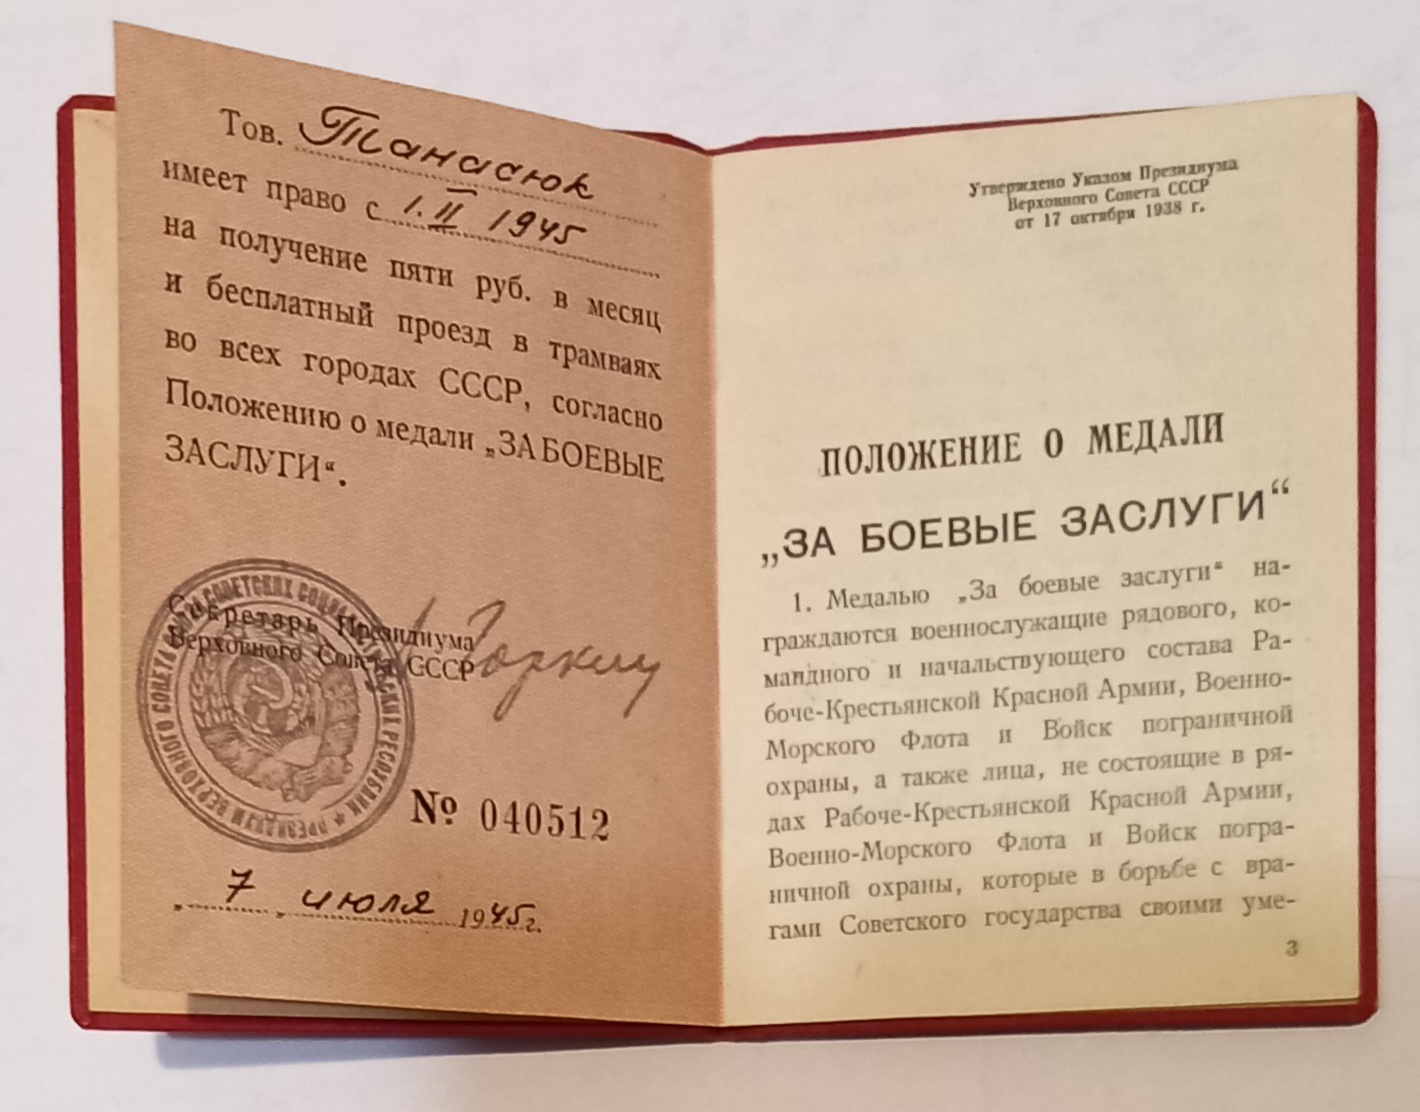 Тов. Танасюк
имеет право с 1. II 1945
на получение пяти руб. в месяц
и бесплатный проезд в трамваях
во всех городах СССР, согласно
Положению о медали „ЗА БОЕВЫЕ
ЗАСЛУГИ“.
Секретарь Президиума
Верховного Совета СССР
Горкин
ПРЕЗИДИУМ ВЕРХОВНОГО СОВЕТА СОЮЗА СОВЕТСКИХ СОЦИАЛИСТИЧЕСКИХ РЕСПУБЛИК
№ 040512
„ 7 „ июля 1945 г.
Утверждено Указом Президиума
Верховного Совета СССР
от 17 октября 1938 г.
ПОЛОЖЕНИЕ О МЕДАЛИ
„ЗА БОЕВЫЕ ЗАСЛУГИ“
1. Медалью „За боевые заслуги“ на-
граждаются военнослужащие рядового, ко-
мандного и начальствующего состава Ра-
боче-Крестьянской Красной Армии, Военно-
Морского Флота и Войск пограничной
охраны, а также лица, не состоящие в ря-
дах Рабоче-Крестьянской Красной Армии,
Военно-Морского Флота и Войск погра-
ничной охраны, которые в борьбе с вра-
гами Советского государства своими уме-
3